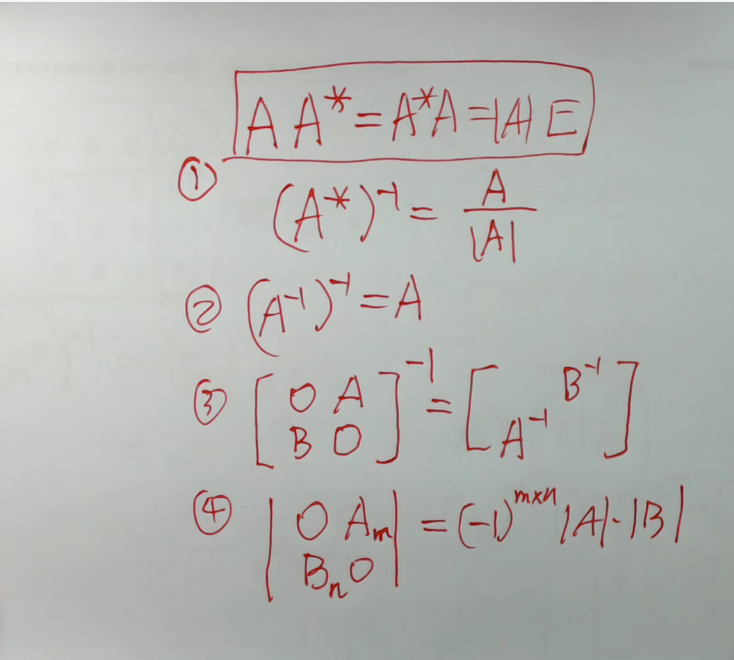 A A* = A*A = |A| E
① (A*)⁻¹ = A/|A|
② (A⁻¹)⁻¹ = A
③ [O A; B O]⁻¹ = [ B⁻¹; A⁻¹ ]
④ |O Aₘ; Bₙ O| = (-1)ᵐˣⁿ |A|·|B|